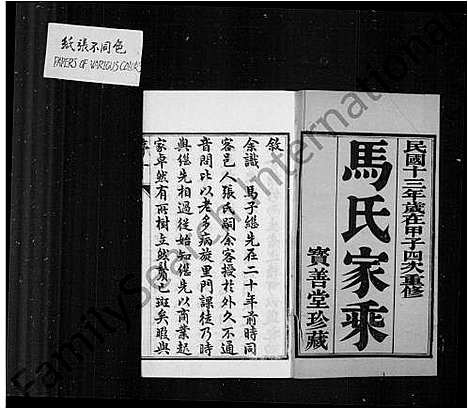 紙張不同色
PAPERS OF VARIOUS COLORS
民國十三年歲在甲子四次重修
馬氏家乘
寶善堂珍藏
敘
余識 馬子繼先在二十年前時同
客邑人張氏嗣余客授於外久不通
音問比以老多病旋里門課徒乃時
與繼先相過從始知繼先以商業起
家卓然有所樹立然鬢已斑矣暇與
序 一
FamilySearch International